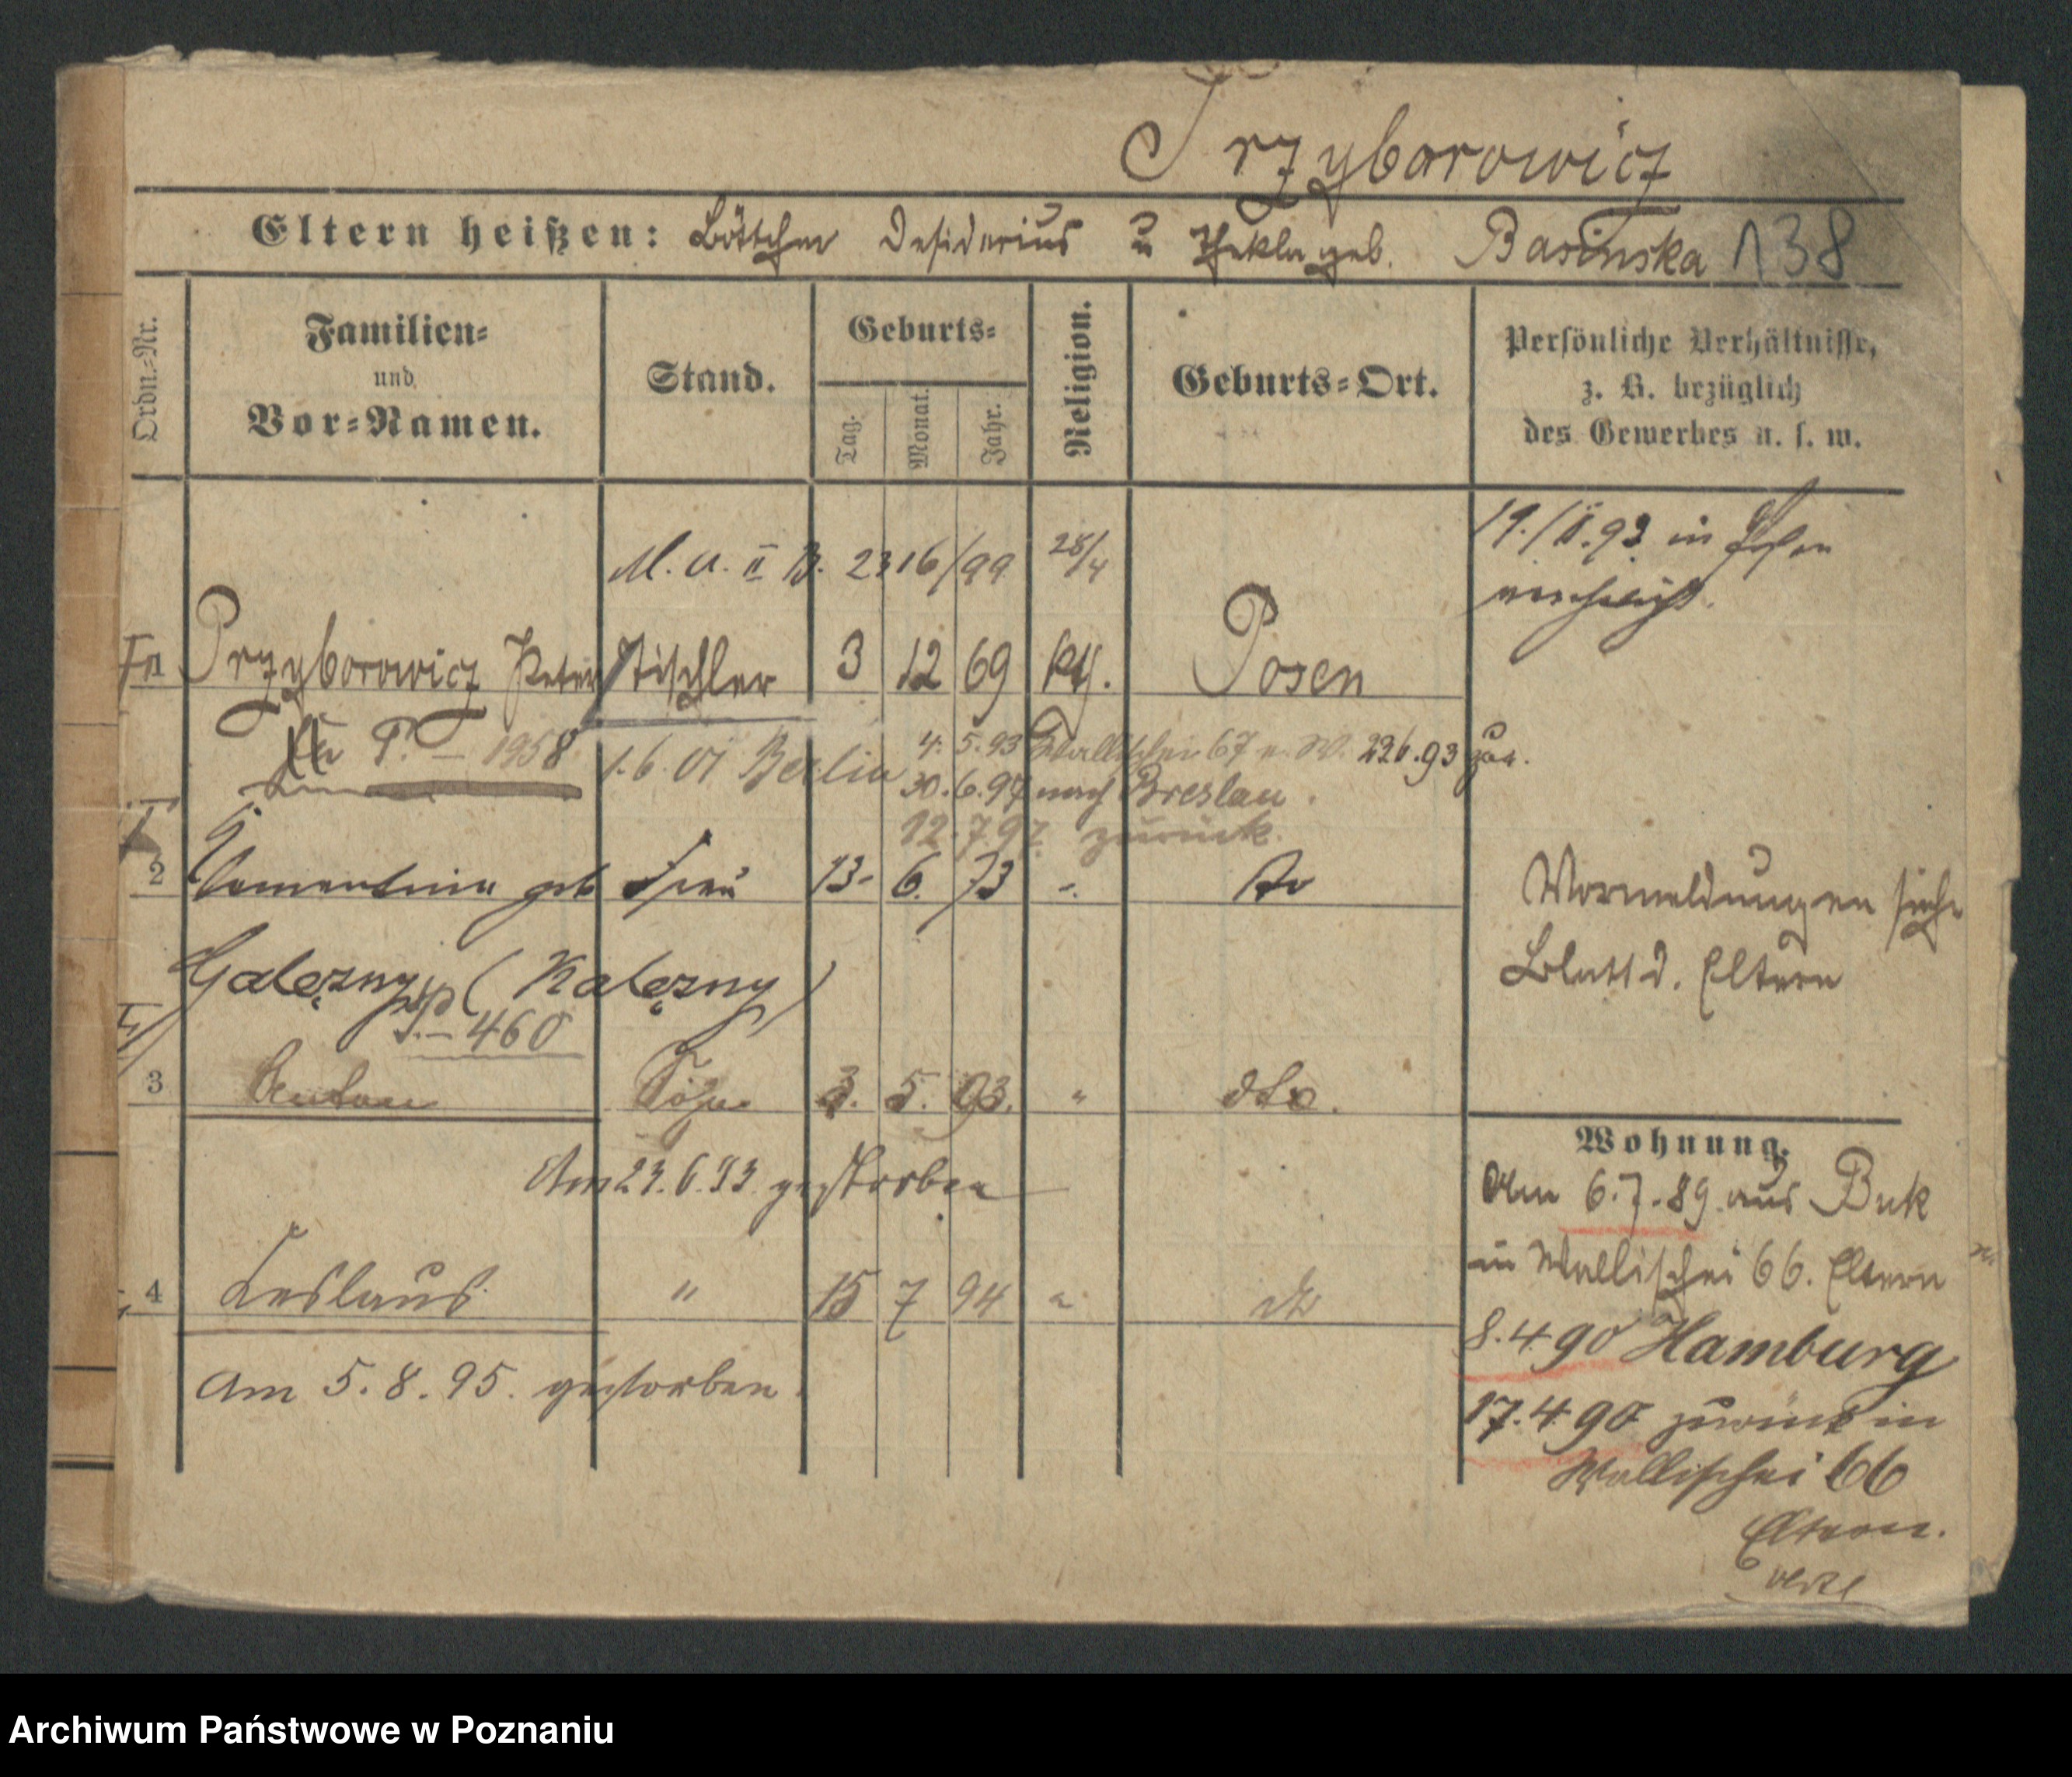 Przyborowicz
Eltern heißen: Böttcher Desiderius u Thekla geb. Basinska 138
Ordn.-Nr.
Familien-
und
Vor-Namen.
Stand.
Geburts-
Tag.
Monat.
Jahr.
Religion.
Geburts-Ort.
Persönliche Verhältnisse,
z. B. bezüglich
des Gewerbes u. s. w.
M. U. II B. 2316/99 28/4
19./II.93 in Posen
verehelicht.
1 Przyborowicz Peter Tischler 3 12 69 kth. Posen
P. – 1958 1.6.01 Berlin
4. 5.93 Wallischei 67 23.6.93 zur.
30.6.97 nach Breslau.
12.7.97 zurück.
2 geb Frau 13. 6. 73 " do
Galęzny (Kalęzny)
P. – 460
Vormeldungen siehe
Blatt d. Eltern
3 Anton Söhne 3. 5. 93. " dto.
Am 23.6.93. gestorben
4 Leslaus " 15 7 94 " do
Am 5.8.95. gestorben.
Wohnung.
Am 6.7.89 aus Buk
in Wallischei 66. Eltern
8.4.90 Hamburg
17.4.90 zurück in
Wallischei 66
Eltern.
Archiwum Państwowe w Poznaniu